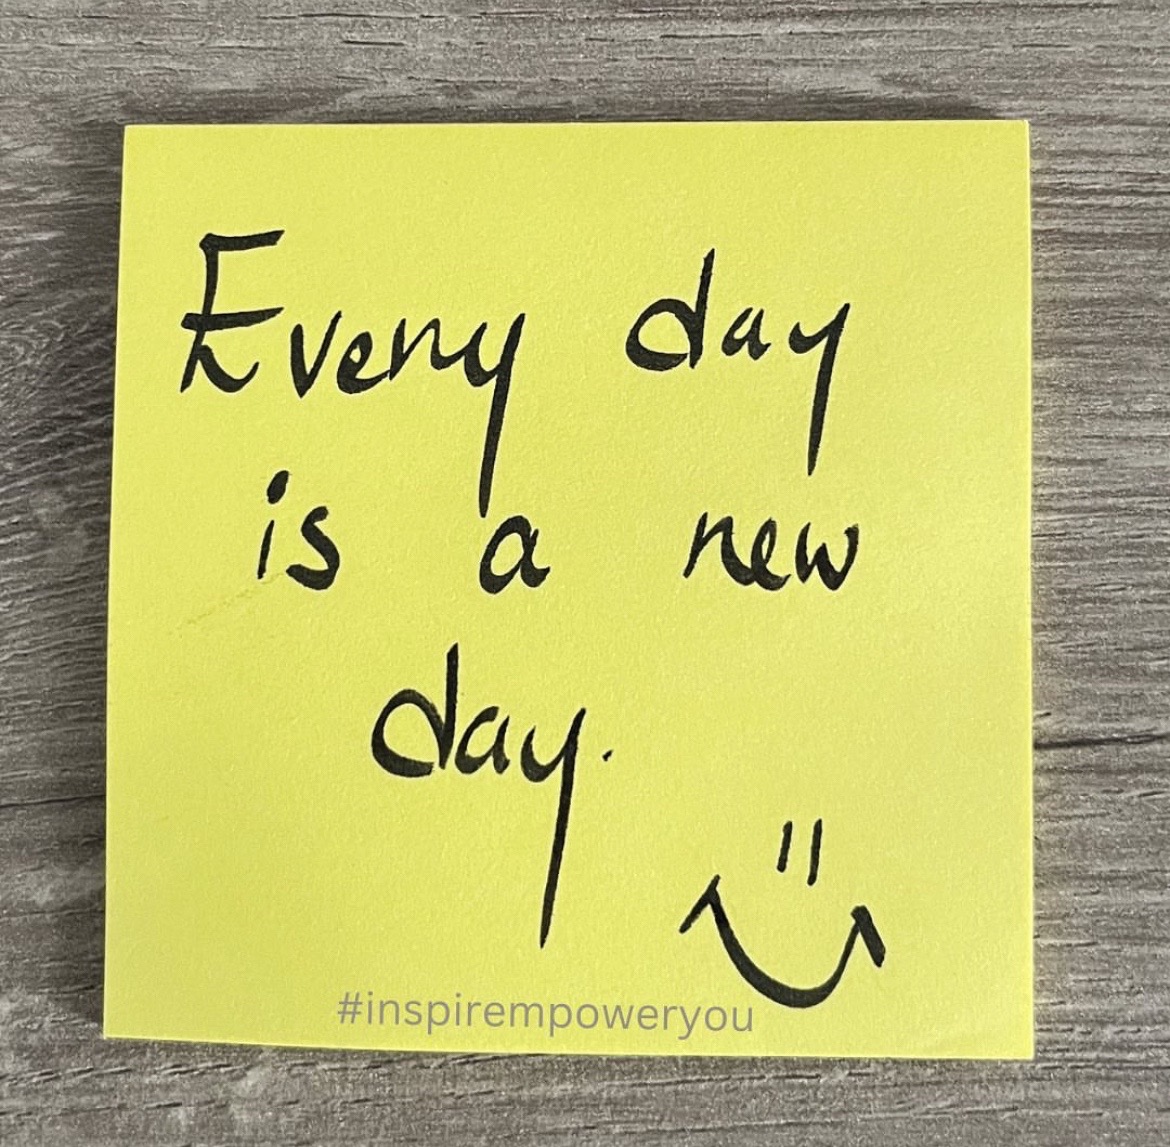 Every day
is a new
day.
#inspirempoweryou